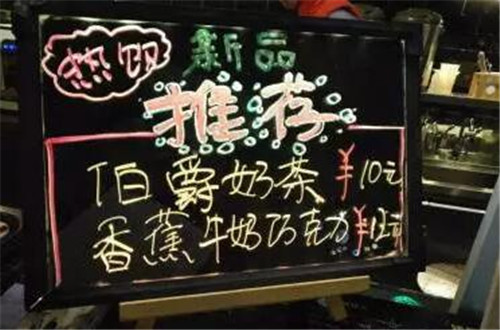 热饮
新品
推荐
伯爵奶茶 ¥10元
香蕉牛奶巧克力 ¥12元